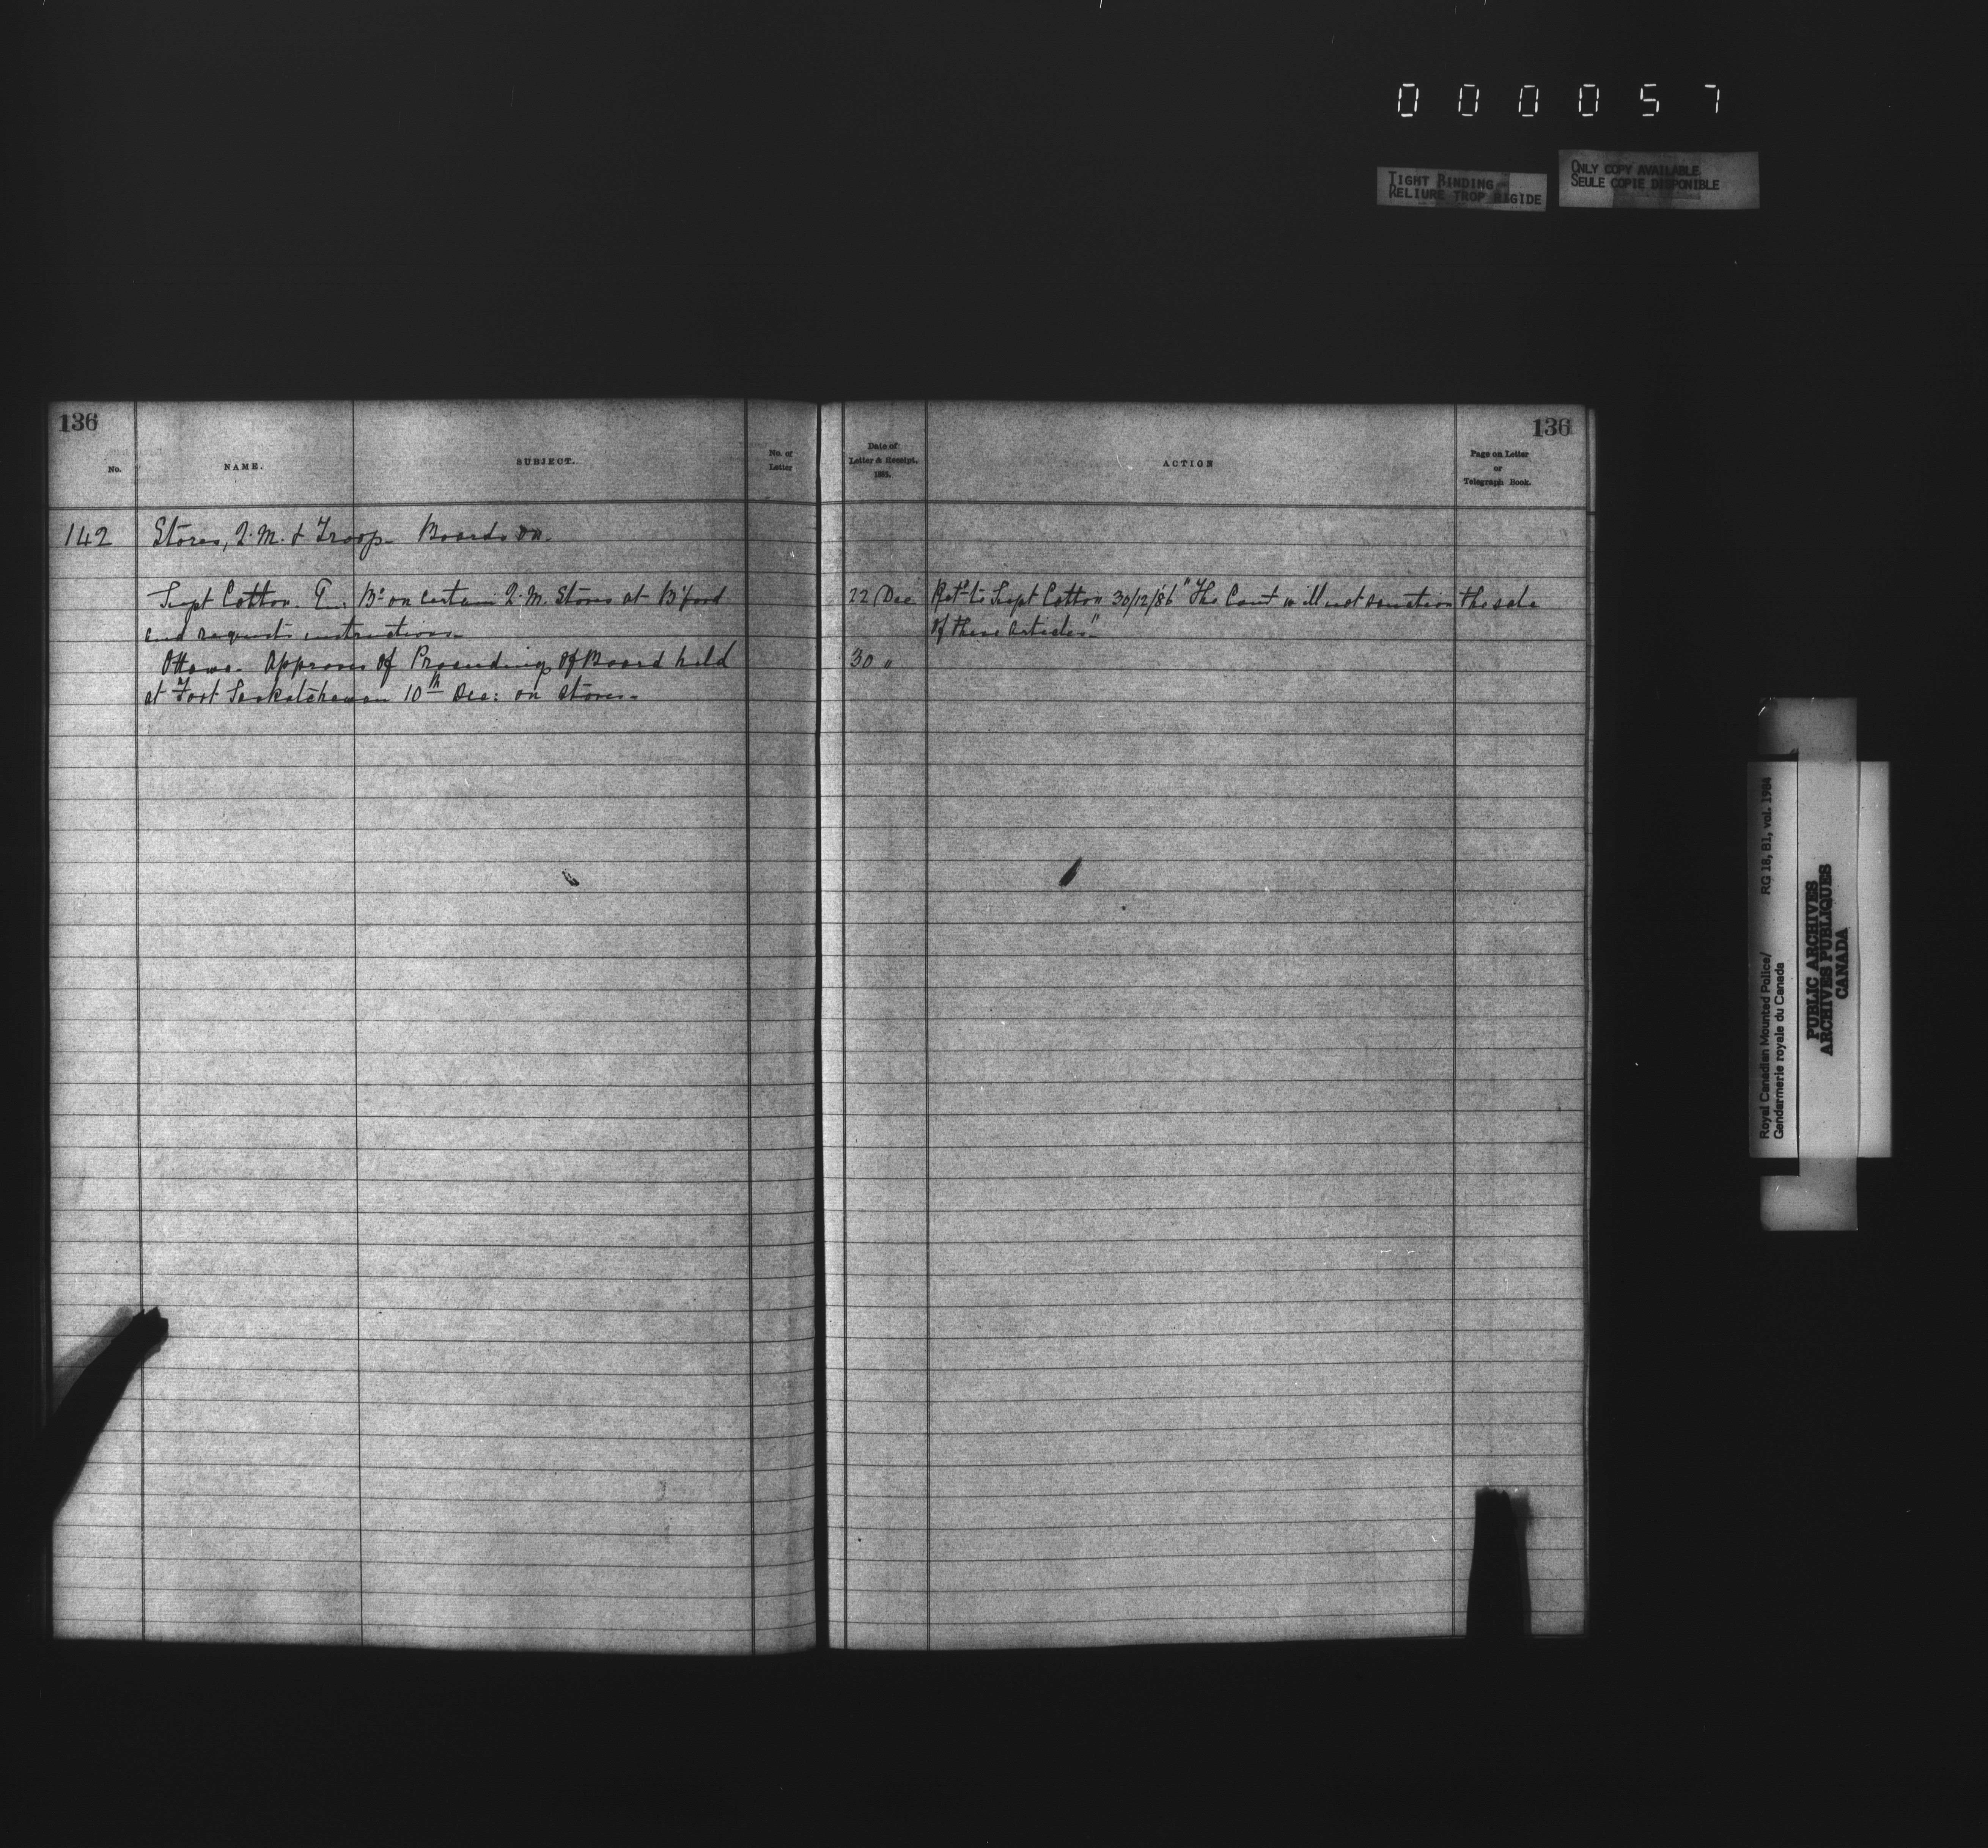 0 0 0 0 5 7
TIGHT BINDING
RELIURE TROP RIGIDE
ONLY COPY AVAILABLE
SEULE COPIE DISPONIBLE
136
No.
NAME.
SUBJECT.
No. of
Letter
142 Stores, Q.M. & Troop. Boards on.
Supt Cotton. Bd on certain Q.M. Stores at B'ford
and requests instructions.
Ottawa. Approves of Proceedings of Board held
at Fort Saskatchewan 10th Dec: on Stores.
136
Date of
Letter & Receipt.
188
ACTION
Page on Letter
or
Telegraph Book.
22 Dec Retd to Supt Cotton 30/12/86 "The Govt will not sanction the sale
of these articles."
30 "
Royal Canadian Mounted Police/ RG 18, B1, vol. 1984
Gendarmerie royale du Canada
PUBLIC ARCHIVES
ARCHIVES PUBLIQUES
CANADA